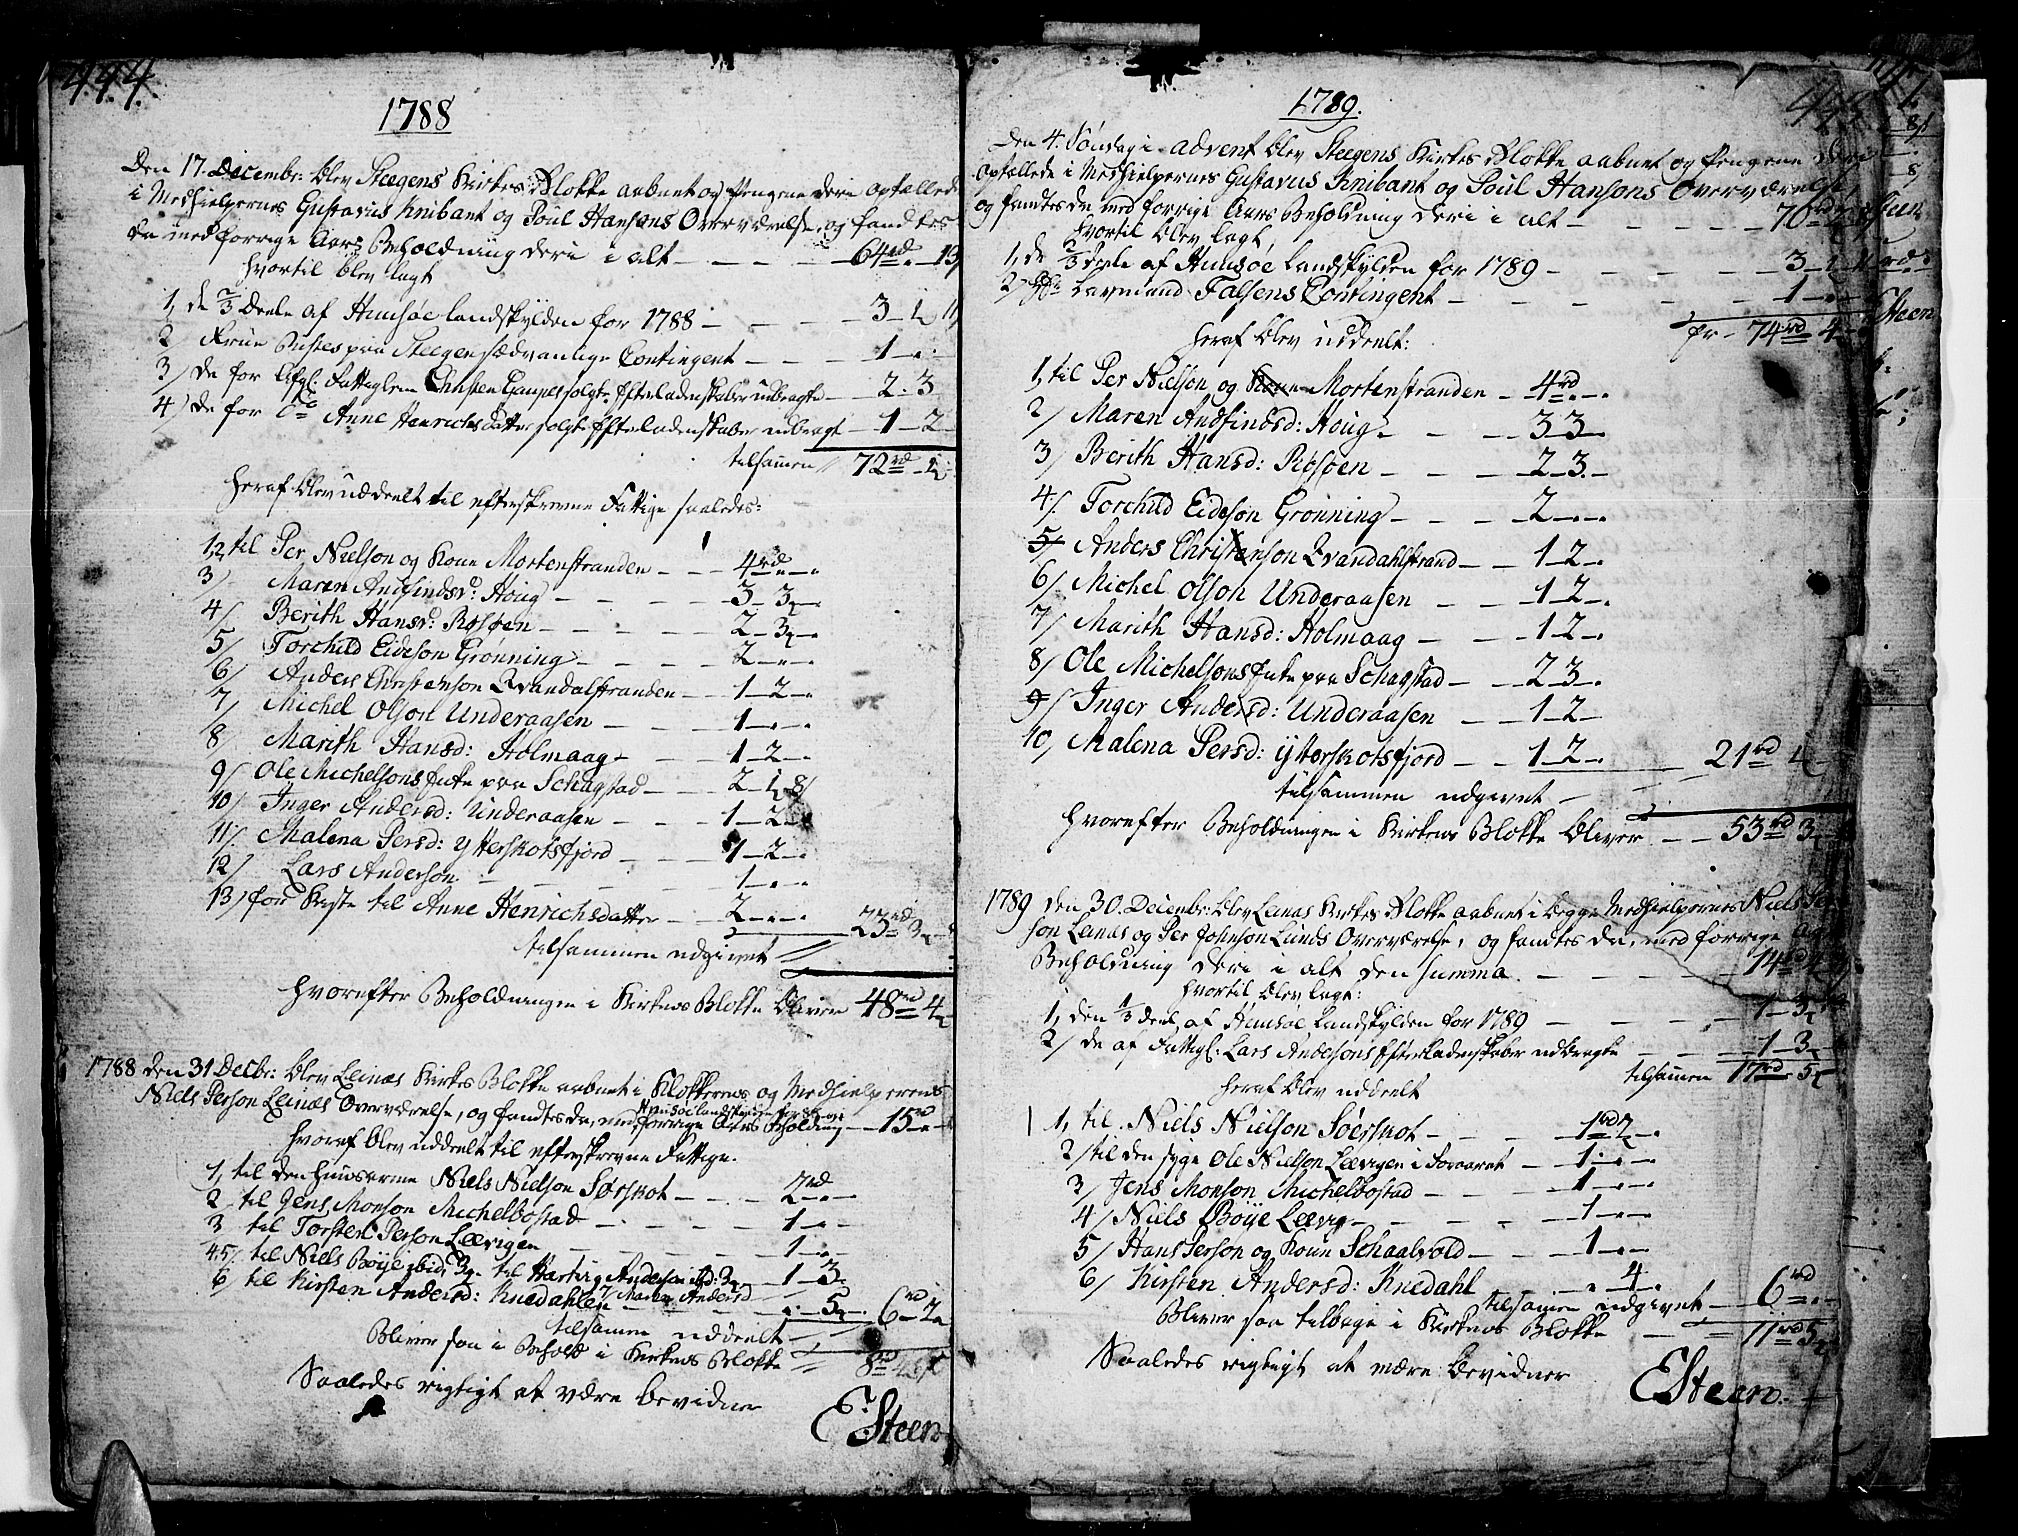 444
1788
Den 17. Decembr: blev Steegens Kirkes Blokke aabnet og Pengene deri optællede
i Medhielpernes Gustavus Knibant og Poul Hansens Overværelse, og fandtes
da med forrige Aars Beholdning deri i alt — 64rd. 13
hvortil blev lagt
1, de 2/3 Deele af Hunsøe landskylden for 1788 — 3
2 Frue Buftes paa Steegen sædvanlige Contingent — 1
3/ de for Afgl: Fattiglem Christen solgte Efterladenskaber indbragte — 2. 3
4/ de for do Anne Henrichs Datter solgte Efterladenskaber indbragt — 1 2
tilsamen 72rd
heraf blev uddeelt til efterskrevne Fattige saaledes:
1,2 til Per Nielson og Kone Mortenstranden — 4rd
3/ Maren Andfindsd: Houg — 3 3
4/ Berith Hansd: Rosøen — 2 3
5/ Torchild Eideson Grønning — 2
6/ Anders Christenson Qvandalstranden — 1 2
7/ Michel Olson Underaasen — 1
8/ Marith Hansd: Holmaag — 1 2
9/ Ole Michelsons Enke paa Schagstad — 2 8/
10/ Inger Andersd: Underaasen — 1 2
11/ Malena Persd: Ytterskotsfjord — 1 2
12/ Lars Anderson — 1
13/ for Kiste til Anne Henrichsdatter — 2 23rd 3
tilsammen udgivet
hvorefter Beholdningen i Kirkens Blokke bliver 48rd 4
1788 den 31 Decbr: blev Leines Kirkes Blokke aabnet i Klokkerens og Medhielperens
Niels Person Leinæs Overværelse, og fandtes da, med forrige Aars Beholdning — 15rd
hvoraf blev uddeelt til efterskrevne Fattige.
1, til den huusarme Niels Nielson Sørskot — 2rd
2 til Jens Monson Michelbostad — 1
3 til Torsten Person Leevigen — 1
4.5/ til Niels Boije ibid: 3 til Hartvig Anderson ibid: 3 — 1 3
6 til Kirsten Andersd: Knedahl — 5 6rd 2
tilsamen uddeelt
Bliver saa i Behold i Kirkens Blokke 8rd
Saaledes rigtigt at være bevidner
E: Steen
1789.
Den 4. Søndag i Advent blev Steegens Kirkes Blokke aabnet og Pengene deri
optællede i Medhielpernes Gustavus Knibant og Poul Hansons Overværelse,
og fandtes da med forrige Aars Beholdning deri i alt — 70rd
hvortil blev lagt,
1, de 2/3 deele af Hunsøe Landskylden for 1789 — 3
2/ Hr Lavmand Falsens Contingent — 1
74rd 4
heraf blev uddeelt:
1, til Per Nielson, og Kone Mortenstranden — 4rd
2/ Maren Andfindsd: Houg — 3 3
3/ Berith Hansd: Rosøen — 2 3
4/ Torchild Eideson Grønning — 2
5/ Anders Christenson Qvandahlstrand — 1 2
6/ Michel Olson Underaasen — 1 2
7/ Marith Hansd: Holmaag — 1 2
8/ Ole Michelsons Enke paa Schagstad — 2 3
9/ Inger Andersd: Underaasen — 1 2
10/ Malena Persd: Ytterskotsfjord — 1 2 21rd
tilsammen udgivet
hvorefter Beholdningen i Kirkens Blokke bliver — 53rd 3
1789 den 30. Decembr: blev Leines Kirkes Blokke aabnet i begge Medhielpernes Niels Per-
son Leinæs og Per Johnson Lunds Overværelse, og fandtes da, med forrige
Beholdning deri i alt den Summa — 14rd
hvortil blev lagt:
1, den 1/3 deel af Hunsøe Landskylden for 1789 — 1 3
2/ de af Fattigl: Lars Andersons Efterladenskaber indbragte — 1 3
tilsamen 17rd 5
heraf blev uddeelt
1, til Niels Nielson Sørskot — 1rd 2
2/ til den syge Ole Nielson Leevigen i Forvaret — 1
3/ Jens Monson Michelbostad — 1
4/ Niels Boije Leevig — 1
5/ Hans Person og Kone Schaalvold — 1
6/ Kirsten Andersd: Knedahl — 4
tilsamen udgivet 6rd
Bliver saa tilbage i Kirkens Blokke — 11rd 5
Saaledes rigtigt at være bevidner
E Steen